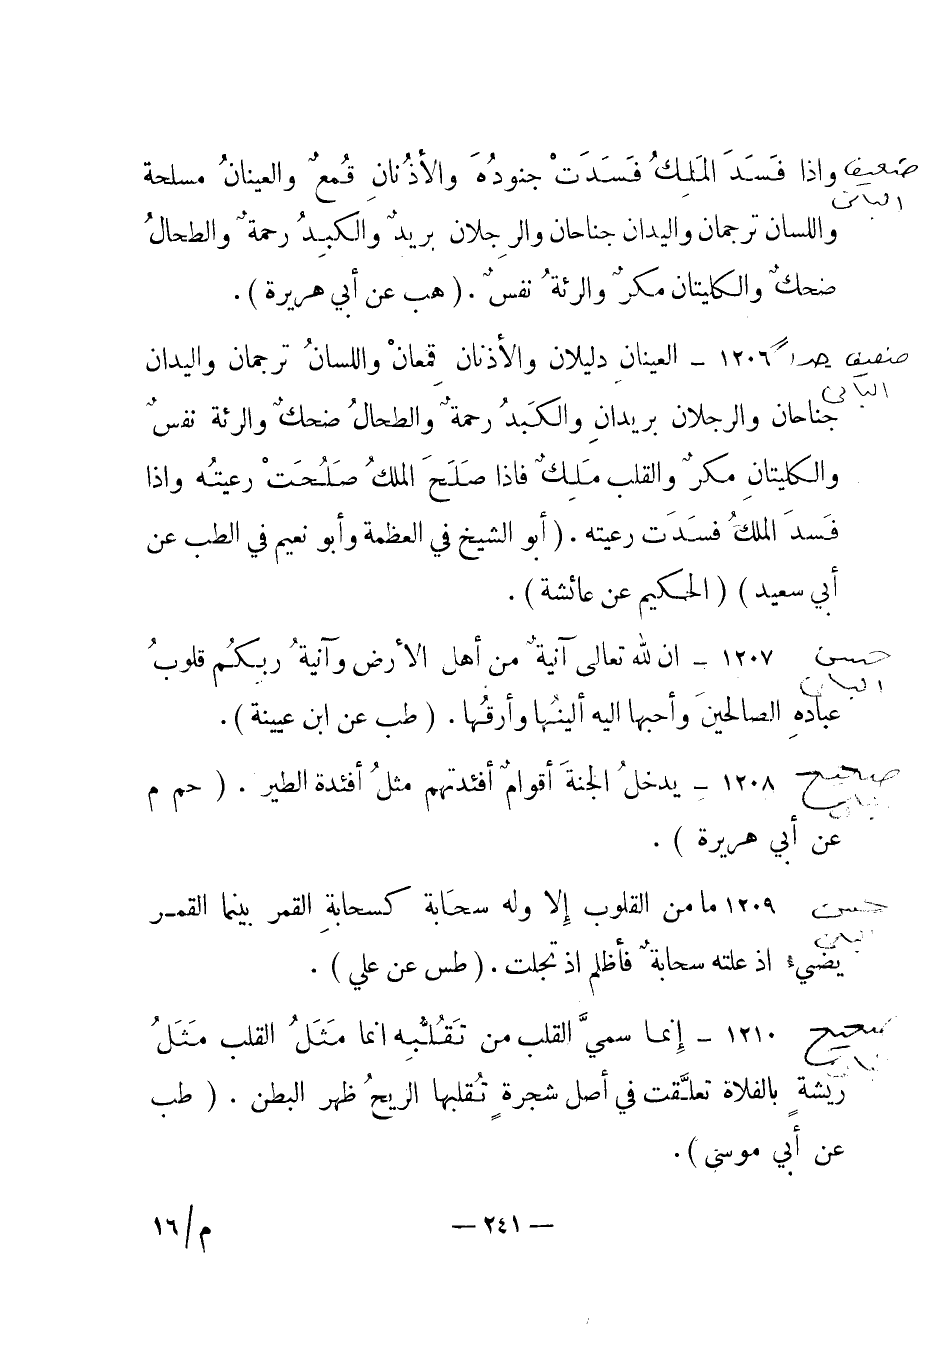 ضعيف واذا فَسَدَ المَلِكُ فَسَدَتْ جنودُهُ والأذُنانِ قُمعٌ والعينانُ مسلحة
الباني
واللسان ترجمان واليدان جناحان والرجلان بريدٌ والكبِدُ رحمةٌ والطحالُ
ضحكٌ والكليتان مكرٌ والرئةُ نفسٌ . ( هب عن أبي هريرة ) .
ضعيف جداً ١٢٠٦ - العينانِ دليلان والأذنان قِمعانْ واللسانُ ترجمان واليدان
الباني
جناحان والرجلان بريدانِ والكَبدُ رحمةٌ والطحالُ ضحكٌ والرئة نفسٌ
والكليتانِ مكرٌ والقلب مَلِكٌ فاذا صَلَحَ الملكُ صَلُحَتْ رعيتُه واذا
فَسدَ الملكُ فسَدَت رعيته . ( أبو الشيخ في العظمة وأبو نعيم في الطب عن
أبي سعيد ) ( الحكيم عن عائشة ) .
حسن ١٢٠٧ - ان لله تعالى آنيةٌ من أهل الأرض وآنيةُ ربكُم قلوبُ
الباني
عبادِه الصالحينَ وأحبها اليه ألينُها وأرقُها . ( طب عن ابن عيينة ) .
صحيح ١٢٠٨ - يدخلُ الجنةَ أقوامٌ أفئدتهم مثلُ أفئدة الطير . ( حم م
الباني
عن أبي هريرة ) .
حسن ١٢٠٩ ما من القلوب إِلا وله سحَابة كسحابةِ القمر بينما القمر
الباني
يضيء اذ علته سحابةٌ فأظلم اذ تجلت . ( طس عن علي ) .
صحيح ١٢١٠ - إِنما سميَّ القلب من تَقَلُّبِه انما مَثَلُ القلب مَثَلُ
الباني
ريشةٍ بالفلاة تعلَّقت في أصل شجرةٍ تُقلبها الريحُ ظهر البطن . ( طب
عن أبي موسى ) .
— ٢٤١ —
م/١٦